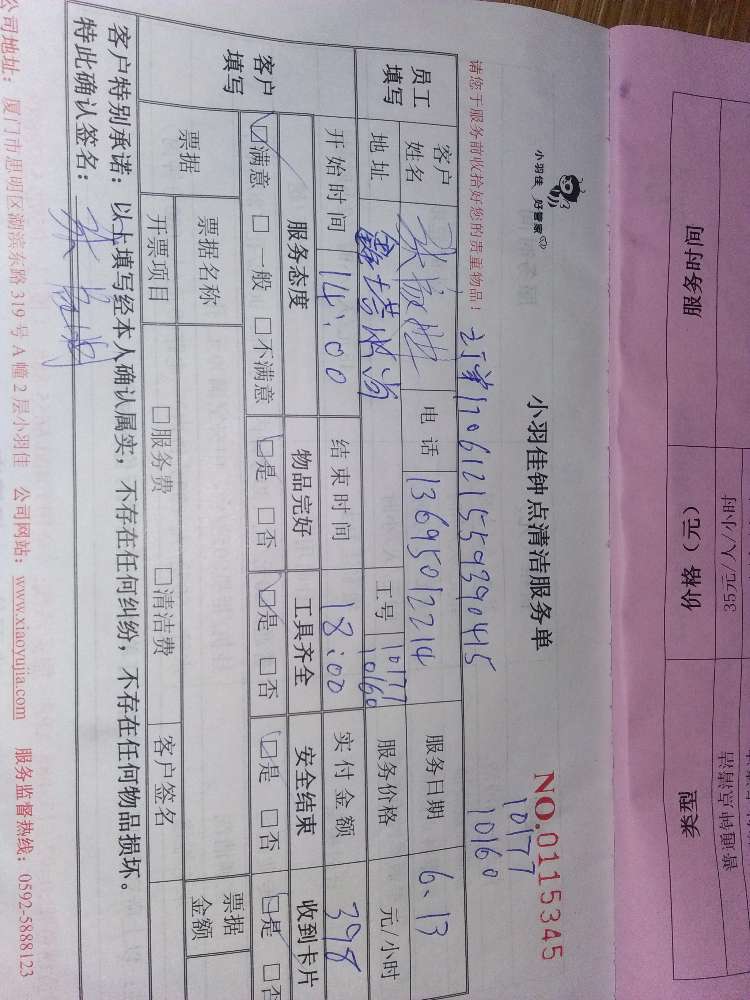 小羽佳 好管家
小羽佳钟点清洁服务单
NO.0115345
请您于服务前收拾好您的贵重物品!
订单1706121559390415
10177
10160
员工填写
客户姓名
电话 13695012214
服务日期 6.13
地址
工号 10177 10160
服务价格 元/小时
开始时间 14:00
结束时间 18:00
实付金额 398
客户填写
服务态度 物品完好 工具齐全 安全结束 收到卡片
☑满意 □一般 □不满意 ☑是 □否 ☑是 □否 ☑是 □否 ☑是 □否
票据
票据名称
票据金额
开票项目 □服务费 □清洁费 客户签名
客户特别承诺:以上填写经本人确认属实,不存在任何纠纷,不存在任何物品损坏。
特此确认签名:
公司地址:厦门市思明区湖滨东路 319 号 A 幢 2 层小羽佳 公司网站:www.xiaoyujia.com 服务监督热线:0592-5888123
服务时间 价格(元) 类型
35元/人/小时 普通钟点清洁